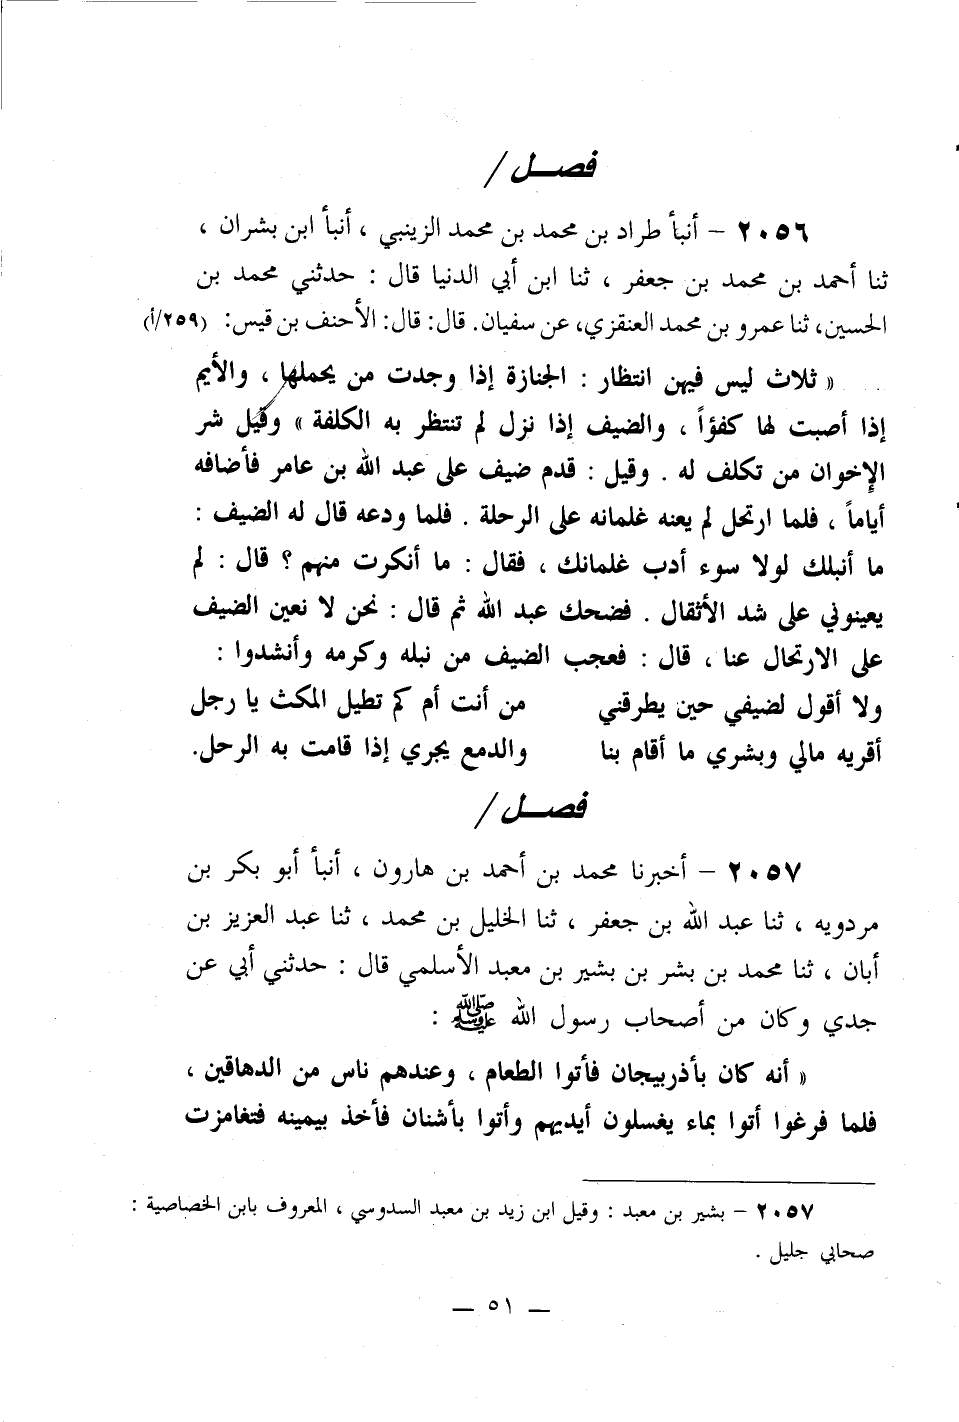 فصــل /
٢٠٥٦ – أنبأ طراد بن محمد بن محمد الزينبي ، أنبأ ابن بشران ،
ثنا أحمد بن محمد بن جعفر ، ثنا ابن أبي الدنيا قال : حدثني محمد بن
الحسين، ثنا عمرو بن محمد العنقزي، عن سفيان. قال: قال: الأحنف بن قيس: (٢٥٩/أ)
« ثلاث ليس فيهن انتظار : الجنازة إذا وجدت من يحملها ، والأيم
إذا أصبت لها كفؤاً ، والضيف إذا نزل لم تنتظر به الكلفة » وقيل شر
الإخوان من تكلف له . وقيل : قدم ضيف على عبد الله بن عامر فأضافه
أياماً ، فلما ارتحل لم يعنه غلمانه على الرحلة . فلما ودعه قال له الضيف :
ما أنبلك لولا سوء أدب غلمانك ، فقال : ما أنكرت منهم ؟ قال : لم
يعينوني على شد الأثقال . فضحك عبد الله ثم قال : نحن لا نعين الضيف
على الارتحال عنا ، قال : فعجب الضيف من نبله وكرمه وأنشدوا :
ولا أقول لضيفي حين يطرقني من أنت أم كم تطيل المكث يا رجل
أقريه مالي وبشري ما أقام بنا والدمع يجري إذا قامت به الرحل.
فصــل /
٢٠٥٧ – أخبرنا محمد بن أحمد بن هارون ، أنبأ أبو بكر بن
مردويه ، ثنا عبد الله بن جعفر ، ثنا الخليل بن محمد ، ثنا عبد العزيز بن
أبان ، ثنا محمد بن بشر بن بشير بن معبد الأسلمي قال : حدثني أبي عن
جدي وكان من أصحاب رسول الله ﷺ :
« أنه كان بأذربيجان فأتوا الطعام ، وعندهم ناس من الدهاقين ،
فلما فرغوا أتوا بماء يغسلون أيديهم وأتوا بأشنان فأخذ بيمينه فتغامزت
٢٠٥٧ – بشير بن معبد : وقيل ابن زيد بن معبد السدوسي ، المعروف بابن الخصاصية :
صحابي جليل .
— ٥١ —